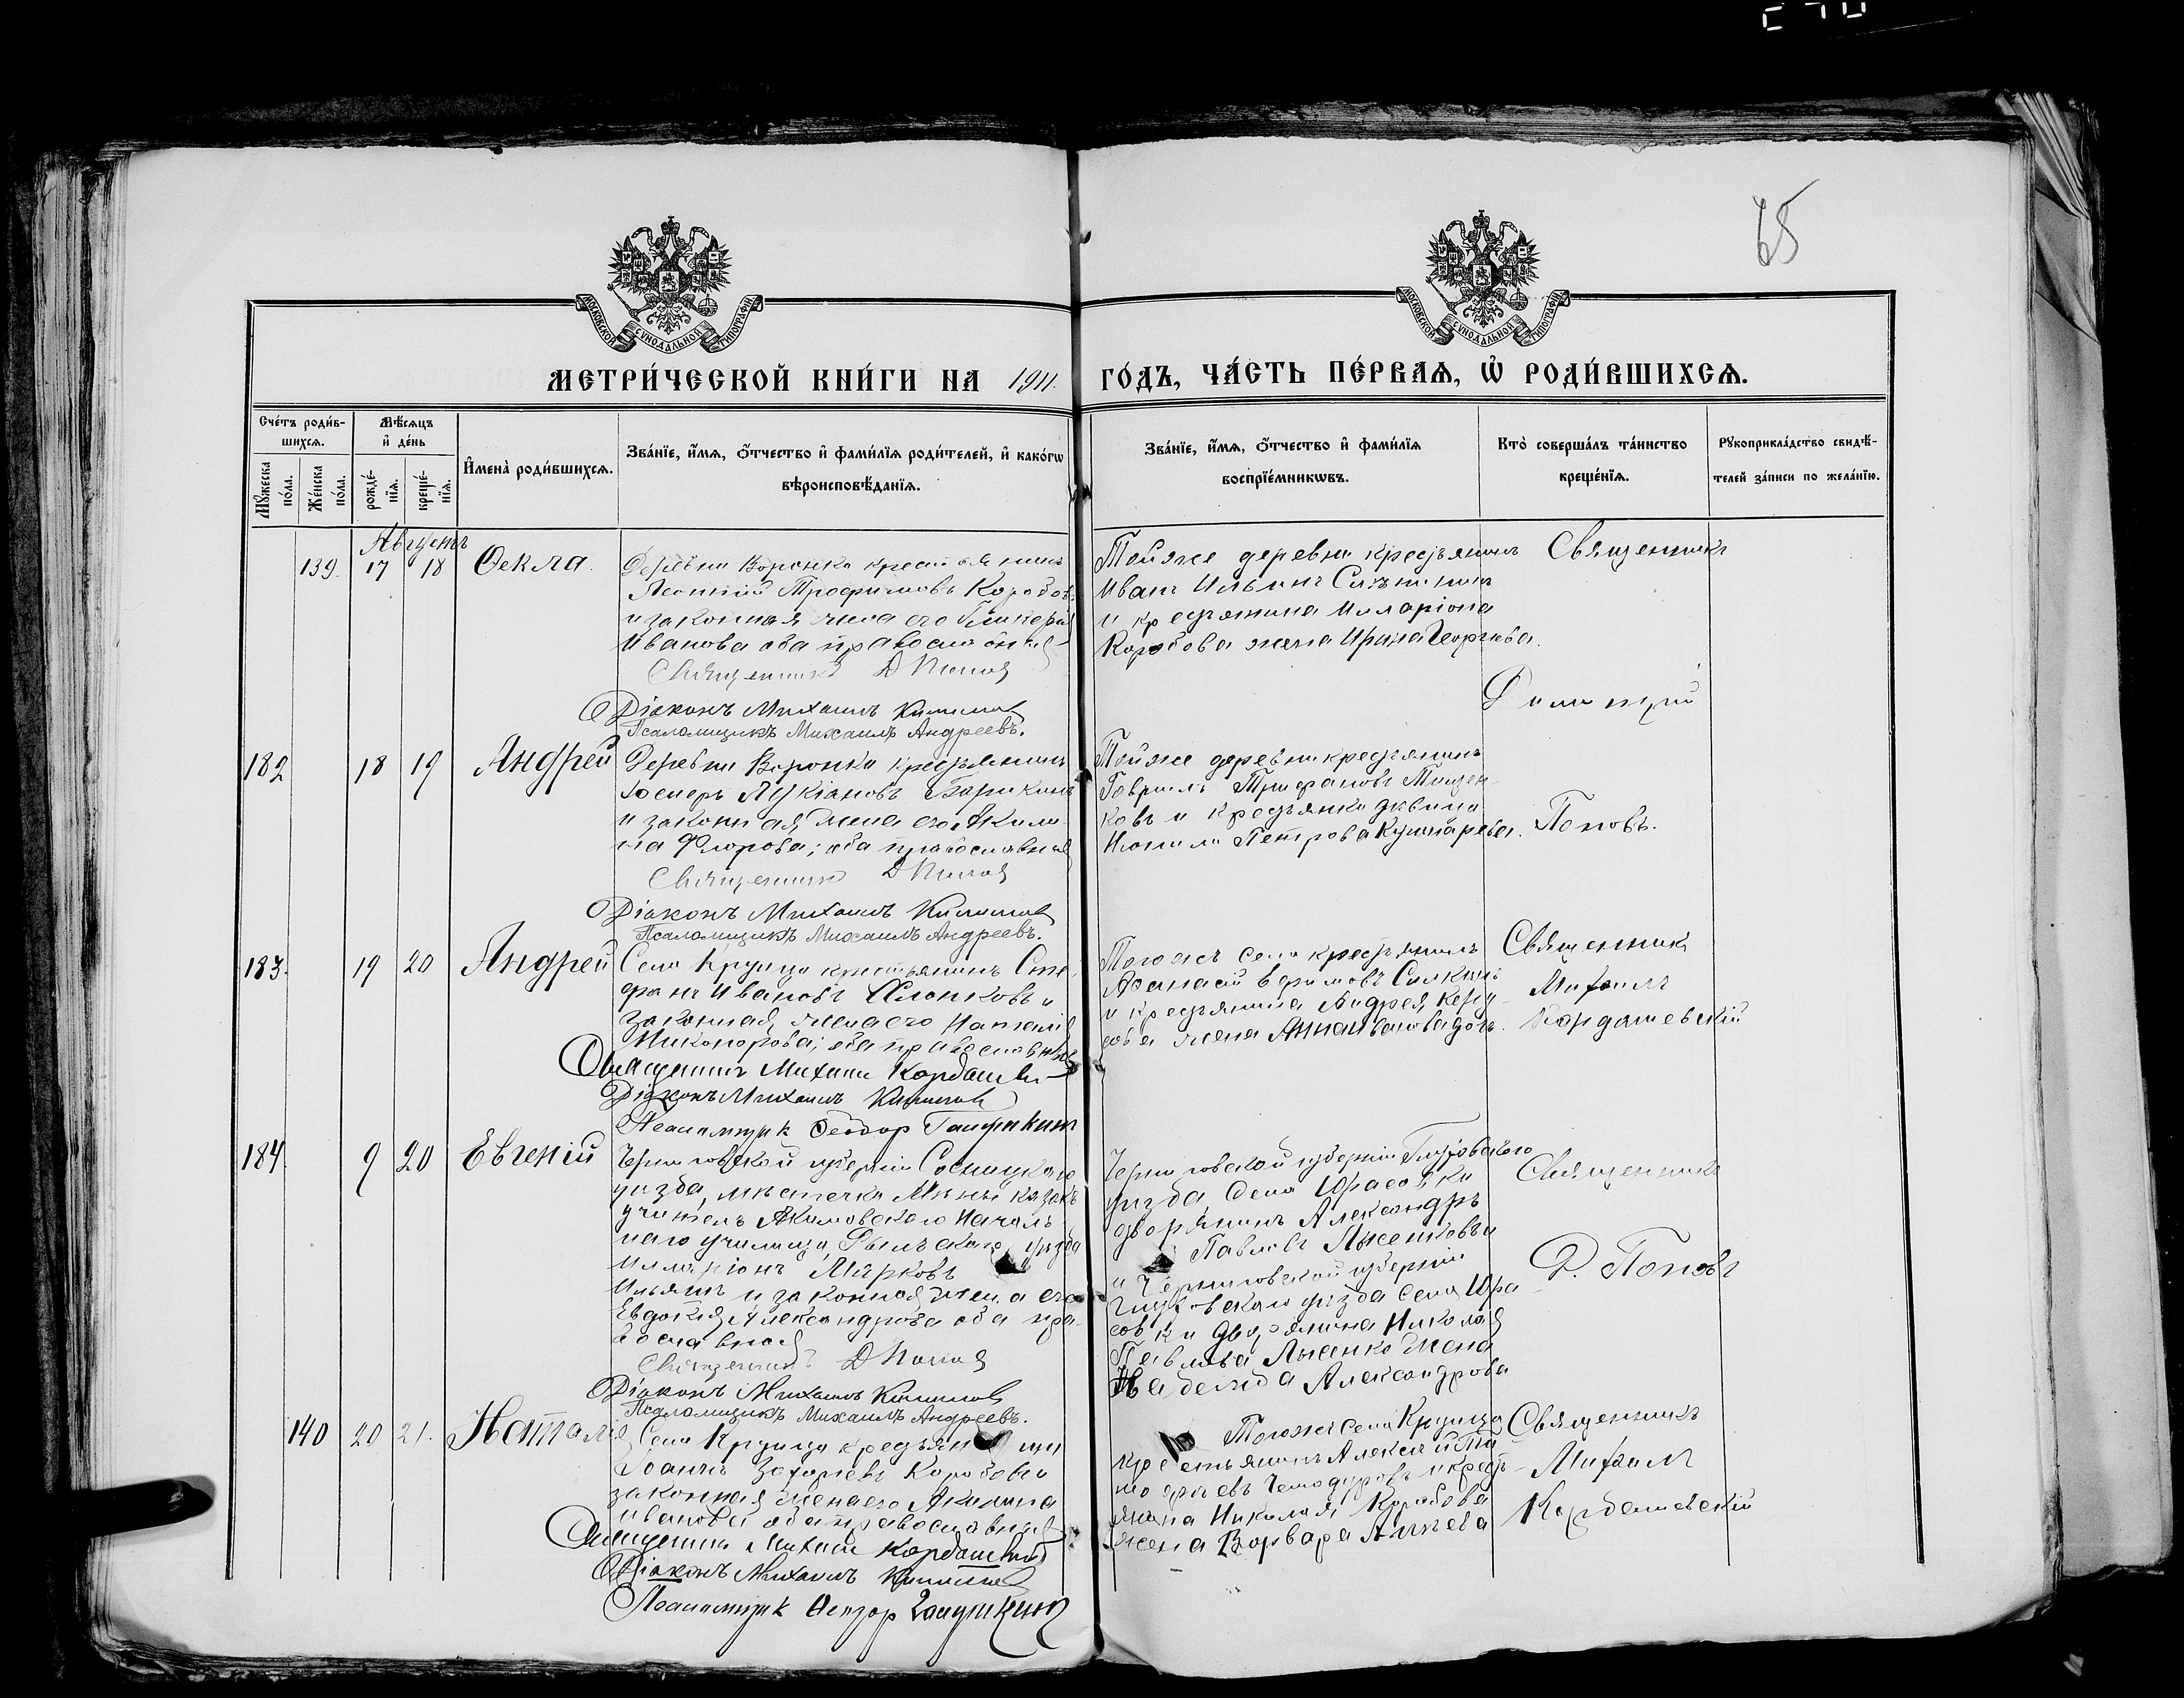 65
МОСКОВСКОЙ СѴНОДАЛЬНОЙ ТИПОГРАФІИ
МОСКОВСКОЙ СѴНОДАЛЬНОЙ ТИПОГРАФІИ
МЕТРИ́ЧЕСКОЙ КНИ́ГИ НА 1911. ГО́ДЪ, ЧА́СТЬ ПЕ́РВАѦ, Ѡ҆ РОДИ́ВШИХСѦ.
Сче́тъ роди́в-
шихсѧ.
Мѣ́сѧцъ
и҆ де́нь
Мꙋ́жеска по́ла.
Же́нска по́ла.
рожде́-
нїѧ.
креще́-
нїѧ.
И҆мена̀ роди́вшихсѧ.
Зва́нїе, и҆́мѧ, ѻ҆́тчество и҆ фами́лїѧ роди́телей, и҆ како́гѡ
вѣроисповѣ́данїѧ.
Зва́нїе, и҆́мѧ, ѻ҆́тчество и҆ фами́лїѧ
воспрїе́мникѡвъ.
Кто̀ соверша́лъ та́инство
креще́нїѧ.
Рꙋкоприкла́дство свидѣ́-
телей за́писи по жела́нїю.
Августъ
139. 17 18 Ѳекла.
Деревни Воронка крестьянинъ
Леонтій Трофимовъ Коробовъ
и законная жена его Гликерія
Иванова оба православные
Священникъ Д Попов
Діаконъ Михаилъ
Псаломщикъ Михаилъ Андреевъ.
Тойже деревни крестьянинъ
Иванъ Ильинъ
и крестьянина Иларіона
Коробова жена Ирина Георгіева.
Священникъ
Димитрій
Поповъ.
182 18 19 Андрей
Деревни Воронка крестьянинъ
Лукіановъ
и законная жена его Акили-
на Флорова; оба православные
Священникъ Д Попов
Діаконъ Михаилъ
Псаломщикъ Михаилъ Андреевъ.
Тойже деревни крестьянинъ
Гавріилъ Трифановъ Тищен-
ковъ и крестьянка девица
Петрова
183. 19 20 Андрей
Села Крупца крестьянинъ Сте-
фанъ Ивановъ Хлопковъ и
законная жена его Наталія
Никонорова; оба православные
Священникъ Михаилъ Кардашев
Діаконъ Михаилъ
Псаломщик Ѳеодор
Тогожъ села крестьянинъ
Аѳанасій Ефимовъ
и крестьянина Андрея
жена Анна Иванова дочь.
Священник
Михаилъ
Кардашевскій
184. 9 20 Евгеній
Черниговской губерніи Сосницкаго
уезда, местечка Мены казакъ
учитель Акимовскаго Началь-
наго училища, Рыльскаго уезда
Илларіонъ Марковъ
Ильяш и законная жена его
Евдокия Александрова оба пра-
вославные
Священникъ Д Попов
Діаконъ Михаилъ
Псаломщикъ Михаилъ Андреевъ.
Черниговской губерніи Глуховскаго
уезда Села
дворянинъ Александръ
Павловъ
и Черниговской губерніи
Глуховскаго уезда села
дворянина Николая
Павлова Лысенко жена
Надежда Александрова
Священникъ
Д. Поповъ
140 20 21. Наталія
Села Крупца
Іоаннъ Захаріевъ Коробовъ и
законная жена его Акилина
Иванова оба православные
Священникъ Михаил Кардашевскій
Діаконъ Михаилъ
Псаломщик Ѳеодор
Тогожъ села Крупца
крестьянинъ Алексей
Чемодуровъ и крест-
янина Николая Коробова
жена Варвара
Священникъ
Михаилъ
Кардашевскій